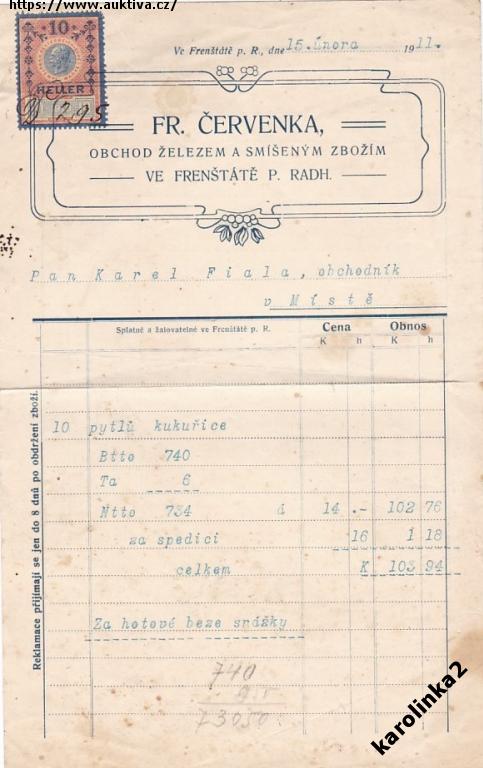 https://www.auktiva.cz/
10
HELLER
Ve Frenštátě p. R., dne 15. února 1911.
FR. ČERVENKA,
OBCHOD ŽELEZEM A SMÍŠENÝM ZBOŽÍM
VE FRENŠTÁTĚ P. RADH.
Pan Karel Fiala, obchodník
v Místě
Splatné a žalovatelné ve Frenštátě p. R. Cena Obnos
K h K h
10 pytlů kukuřice
Btto 740
Ta 6
Ntto 734 á 14 .- 102 76
za spedici 16 1 18
celkem K 103 94
Za hotové beze srážky
740
73050
Reklamace přijímají se jen do 8 dnů po obdržení zboží.
karolinka2